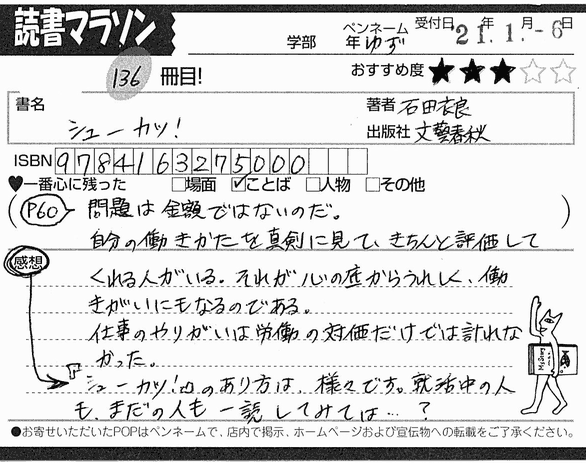 読書マラソン
学部 年 ペンネーム ゆず 受付日 21年1.月-6日
136 冊目! おすすめ度 ★★★☆☆
書名 著者 石田衣良
シューカツ! 出版社 文藝春秋
ISBN 9784163275000
♥一番心に残った □場面 ☑ことば □人物 □その他
(P60 問題は金額ではないのだ。 )
自分の働きかたを真剣に見て、きちんと評価して
感想
くれる人がいる。それが心の底からうれしく、働
きがいにもなるのである。
仕事のやりがいは労働の対価だけでは計れな
かった。
シューカツ!のあり方は、様々です。就活中の人
も、まだの人も一読してみては…?
●お寄せいただいたPOPはペンネームで、店内で掲示、ホームページおよび宣伝物への転載をご了承ください。